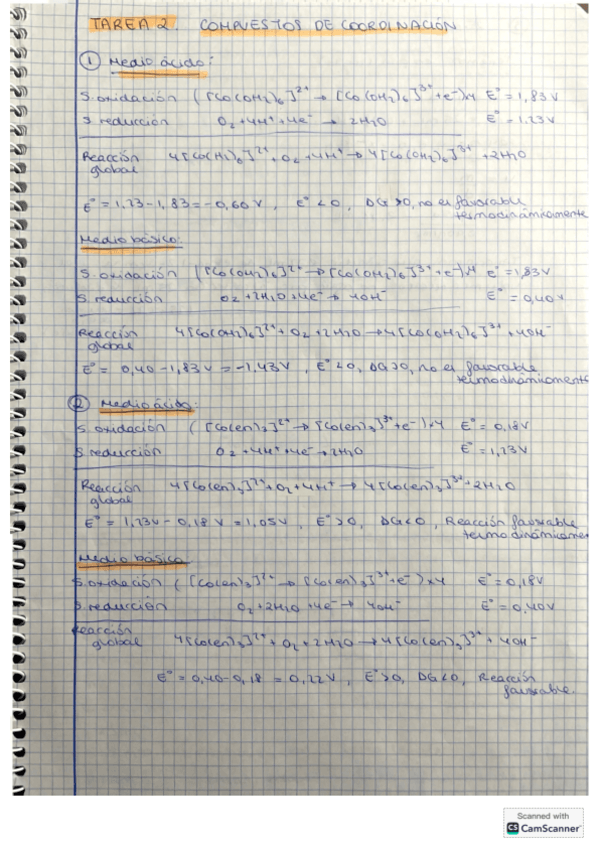 TAREA 2. COMPUESTOS DE COORDINACIÓN
① Medio ácido:
S. oxidación ([Co(OH₂)₆]²⁺ → [Co(OH₂)₆]³⁺ + e⁻)x4 E° = 1,83V
S. reducción O₂ + 4H⁺ + 4e⁻ → 2H₂O E° = 1,23V
Reacción global 4[Co(H₂)₆]²⁺ + O₂ + 4H⁺ → 4[Co(OH₂)₆]³⁺ + 2H₂O
E° = 1,23 - 1,83 = -0,60 V, E° < 0, DG > 0, no es favorable
termodinámicamente
Medio básico:
S. oxidación ([Co(OH₂)₆]²⁺ → [Co(OH₂)₆]³⁺ + e⁻)x4 E° = 1,83V
S. reducción O₂ + 2H₂O + 4e⁻ → 4OH⁻ E° = 0,40V
Reacción global 4[Co(OH₂)₆]²⁺ + O₂ + 2H₂O → 4[Co(OH₂)₆]³⁺ + 4OH⁻
E° = 0,40 - 1,83V = -1,43V, E° < 0, DG > 0, no es favorable
termodinámicamente
② Medio ácido:
S. oxidación ([Co(en)₃]²⁺ → [Co(en)₃]³⁺ + e⁻)x4 E° = 0,18V
S. reducción O₂ + 4H⁺ + 4e⁻ → 2H₂O E° = 1,23V
Reacción global 4[Co(en)₃]²⁺ + O₂ + 4H⁺ → 4[Co(en)₃]³⁺ + 2H₂O
E° = 1,23V - 0,18V = 1,05V, E° > 0, DG < 0, Reacción favorable
termodinámicamen
Medio básico
S. oxidación ([Co(en)₃]²⁺ → [Co(en)₃]³⁺ + e⁻)x4 E° = 0,18V
S. reducción O₂ + 2H₂O + 4e⁻ → 4OH⁻ E° = 0,40V
Reacción global 4[Co(en)₃]²⁺ + O₂ + 2H₂O → 4[Co(en)₃]³⁺ + 4OH⁻
E° = 0,40 - 0,18 = 0,22V, E° > 0, DG < 0, Reacción
favorable.
Scanned with
CS CamScanner